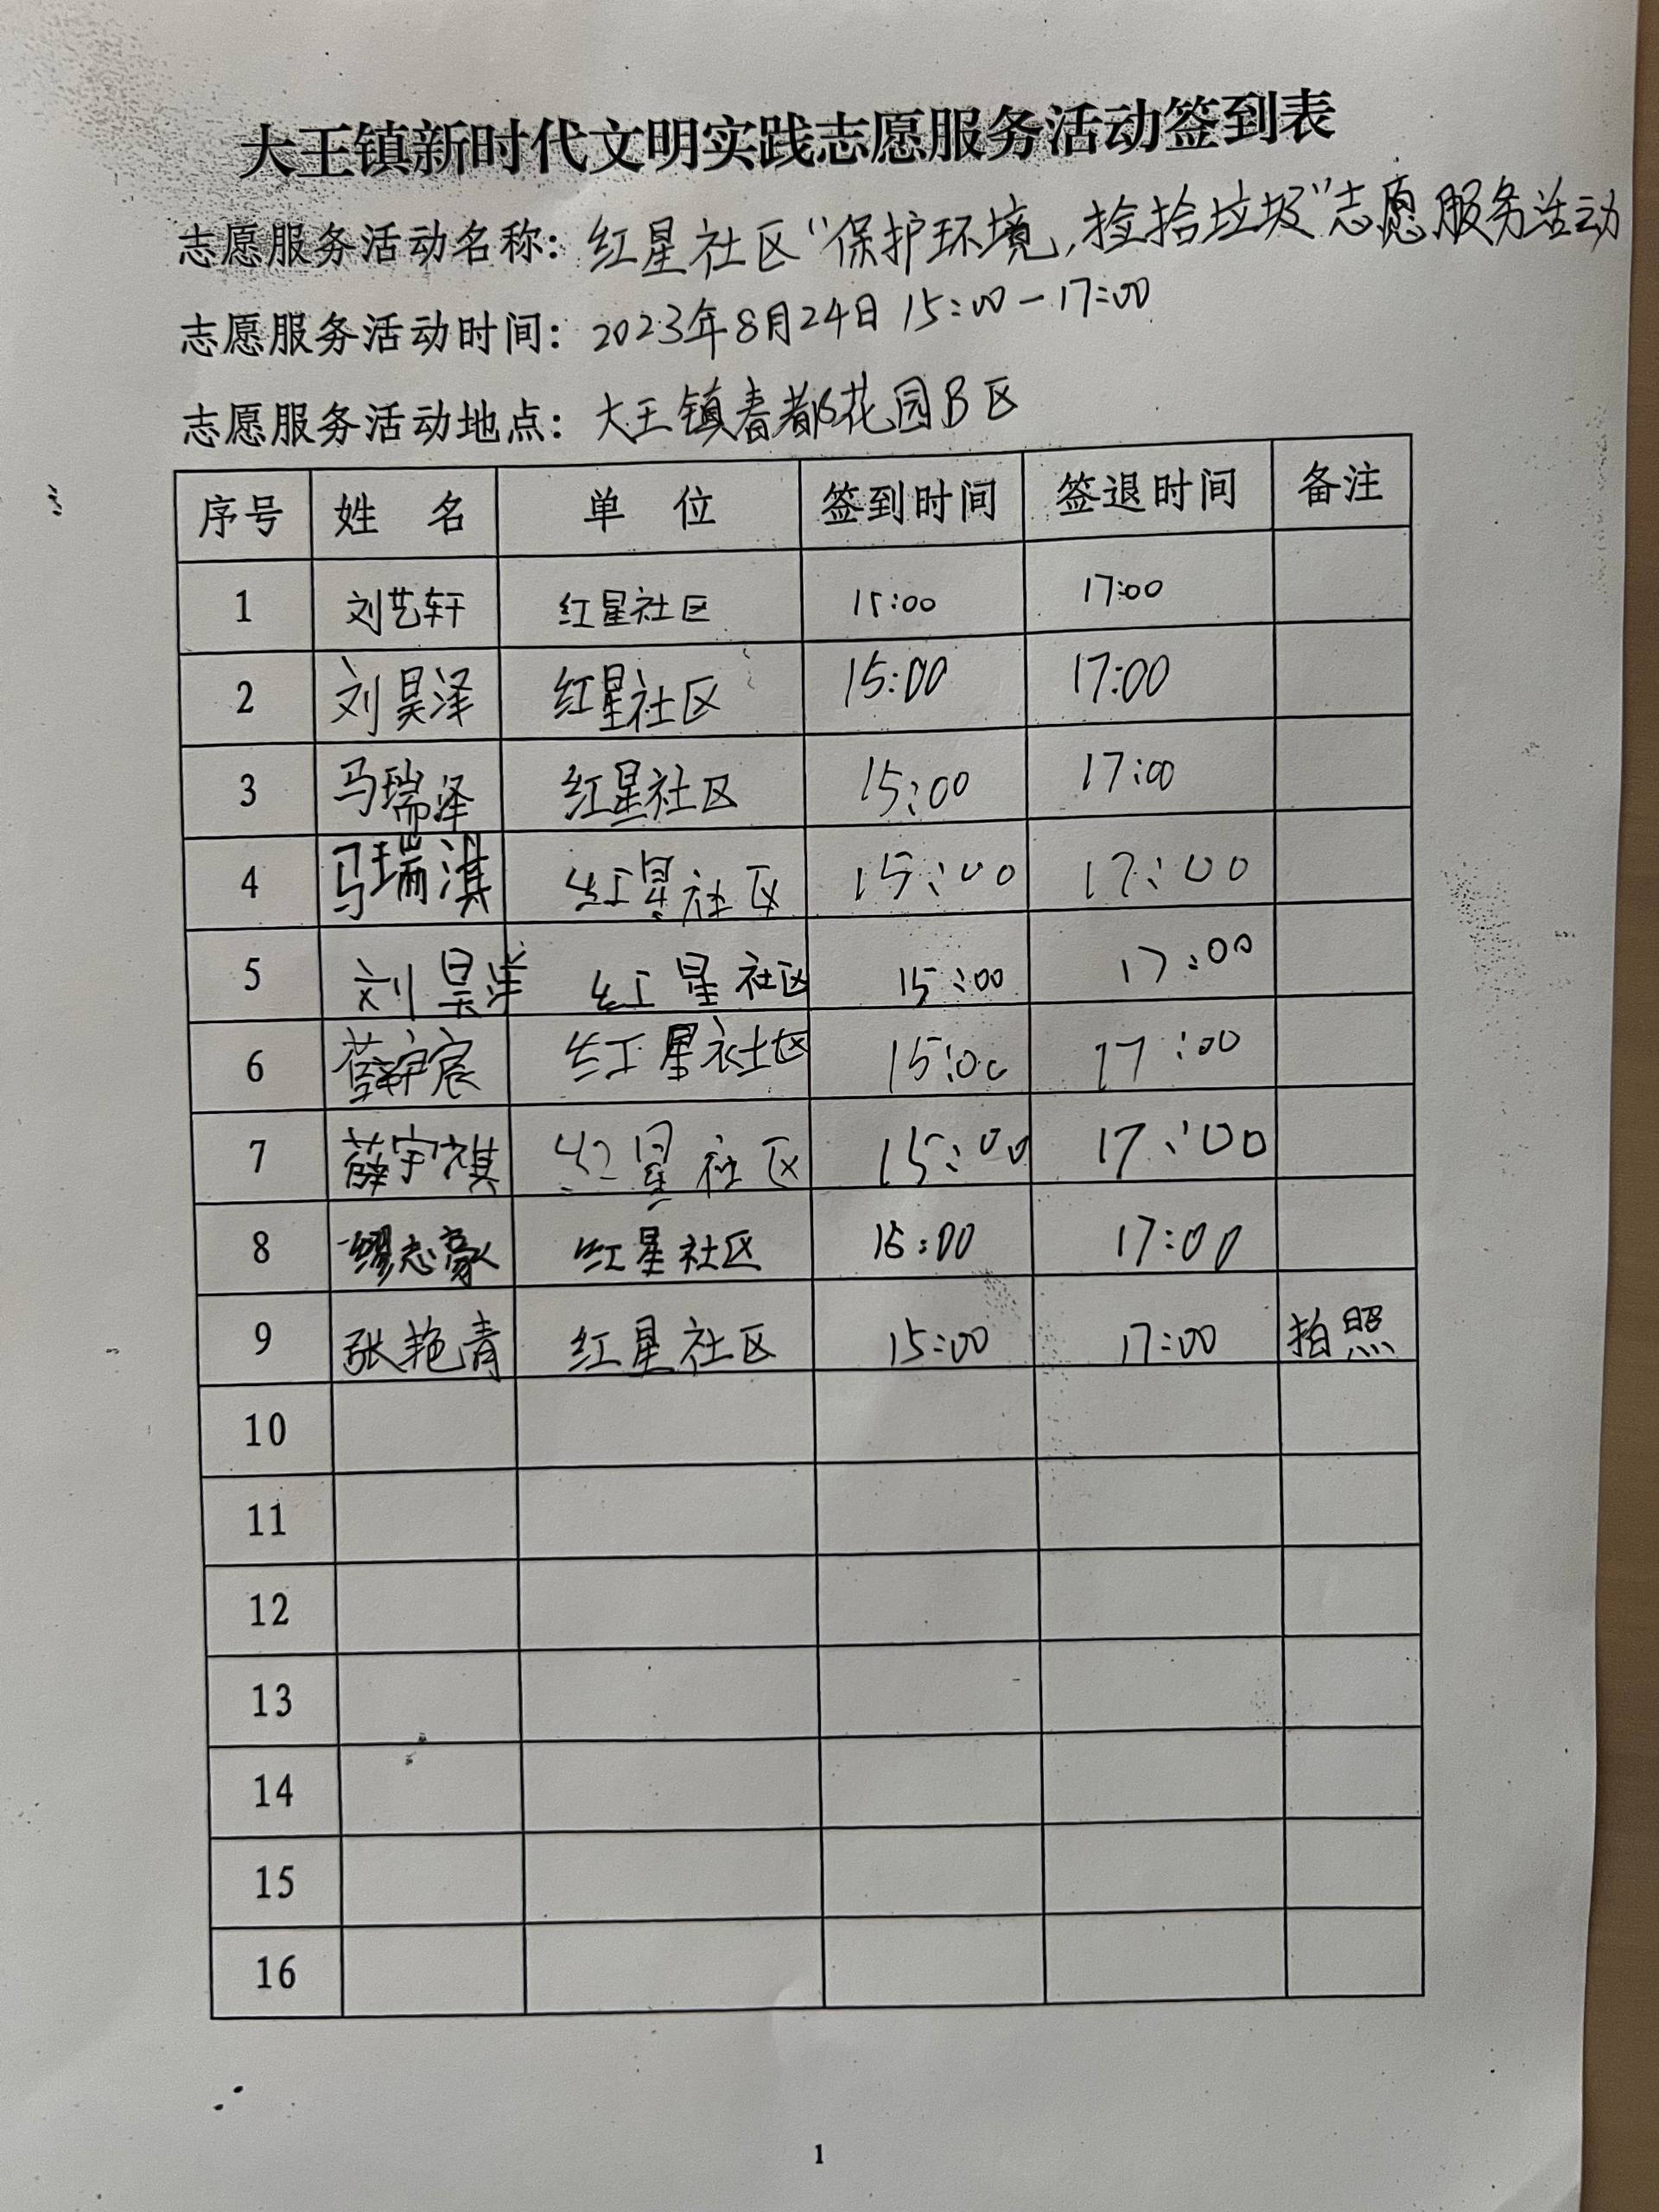 大王镇新时代文明实践志愿服务活动签到表
志愿服务活动名称：红星社区“保护环境，捡拾垃圾”志愿服务活动
志愿服务活动时间：2023年8月24日 15:00-17:00
志愿服务活动地点：大王镇春都花园B区
序号 姓 名 单 位 签到时间 签退时间 备注
1 刘艺轩 红星社区 15:00 17:00
2 刘昊泽 红星社区 15:00 17:00
3 马瑞泽 红星社区 15:00 17:00
4 马瑞淇 红星社区 15:00 17:00
5 刘昊洋 红星社区 15:00 17:00
6 薛宇宸 红星社区 15:00 17:00
7 薛宇祺 红星社区 15:00 17:00
8 缪志豪 红星社区 15:00 17:00
9 张艳青 红星社区 15:00 17:00 拍照
10
11
12
13
14
15
16
1